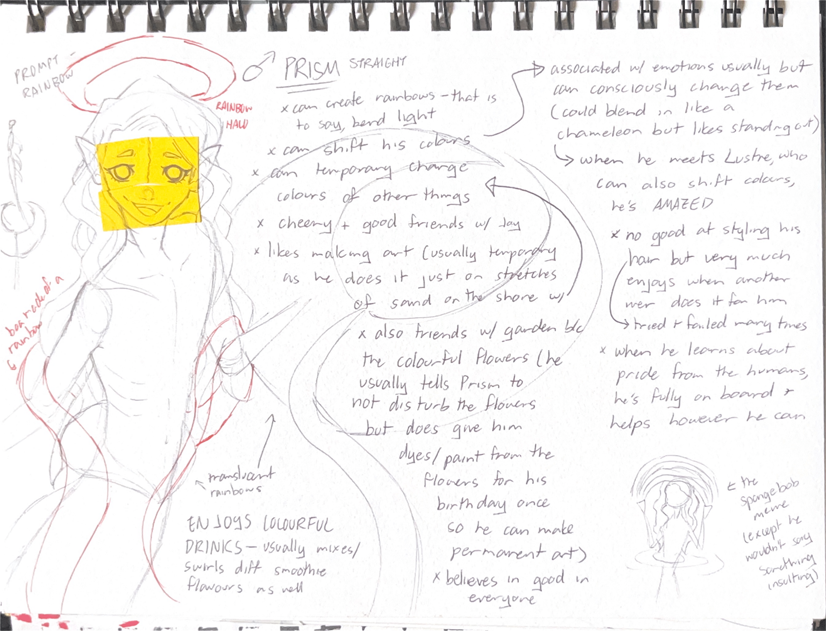 PROMPT -
RAINBOW
♂ PRISM STRAIGHT
RAINBOW
HALO
x can create rainbows - that is
to say, bend light
x can shift his colours
x can temporary change
colours of other things
x cheery + good friends w/ Joy
x likes making art (usually temporary
as he does it just on stretches
of sand on the shore w/
x also friends w/ garden b/c
the colourful flowers (he
usually tells Prism to
not disturb the flowers
but does give him
dyes/paint from the
flowers for his
birthday once
so he can make
permanent art)
x believes in good in
everyone
associated w/ emotions usually but
can consciously change them
(could blend in like a
chameleon but likes standing out)
when he meets Lustre, who
can also shift colours,
he's AMAZED
x no good at styling his
hair but very much
enjoys when another
mer does it for him
tried + failed many times
x when he learns about
pride from the humans,
he's fully on board +
helps however he can
rainbow
translucent
rainbows
ENJOYS COLOURFUL
DRINKS - usually mixes/
swirls diff smoothie
flavours as well
the
spongebob
meme
(except he
wouldn't say
something
insulting)